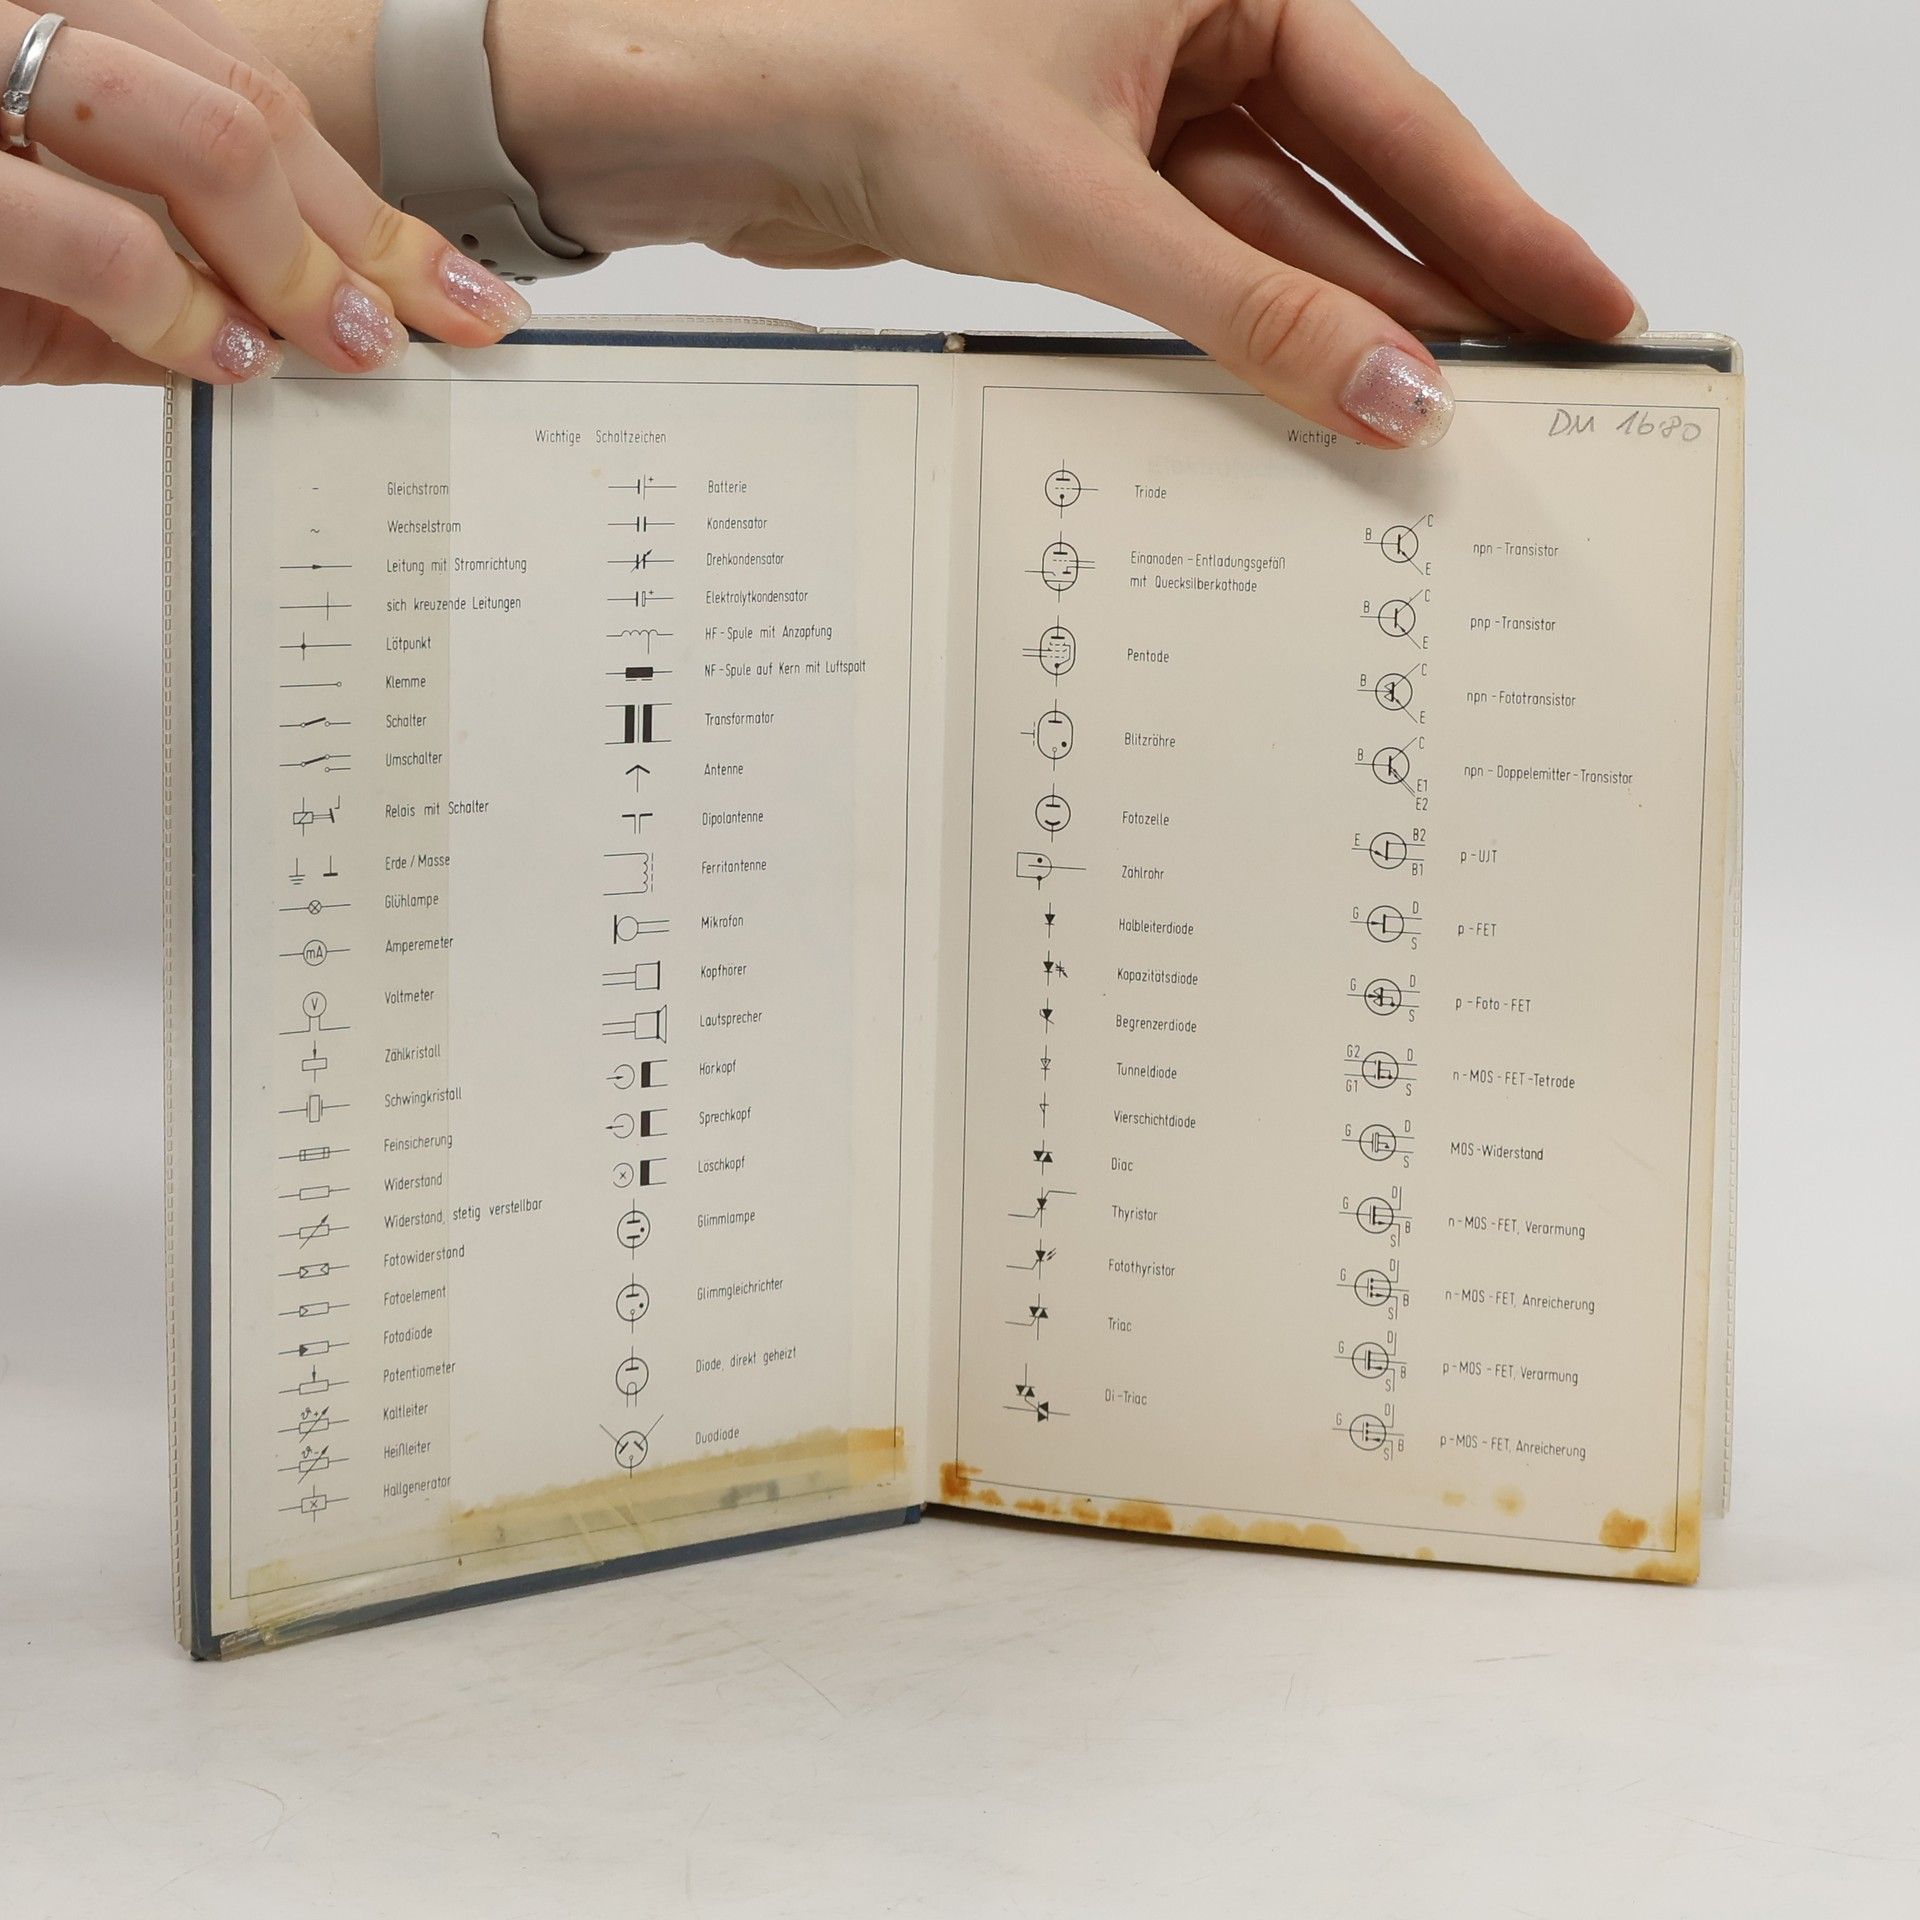 Wichtige Schaltzeichen
Gleichstrom
Wechselstrom
Leitung mit Stromrichtung
sich kreuzende Leitungen
Lötpunkt
Klemme
Schalter
Umschalter
Relais mit Schalter
Erde / Masse
Glühlampe
mA Amperemeter
V Voltmeter
Zählkristall
Schwingkristall
Feinsicherung
Widerstand
Widerstand, stetig verstellbar
Fotowiderstand
Fotoelement
Fotodiode
Potentiometer
ϑ+ Kaltleiter
ϑ- Heißleiter
Hallgenerator
+ Batterie
Kondensator
Drehkondensator
+ Elektrolytkondensator
HF-Spule mit Anzapfung
NF-Spule auf Kern mit Luftspalt
Transformator
Antenne
Dipolantenne
Ferritantenne
Mikrofon
Kopfhörer
Lautsprecher
Hörkopf
Sprechkopf
Löschkopf
Glimmlampe
Glimmgleichrichter
Diode, direkt geheizt
Duodiode
Wichtige
DM 16.80
Triode
Einanoden-Entladungsgefäß
mit Quecksilberkathode
Pentode
Blitzröhre
Fotozelle
Zählrohr
Halbleiterdiode
Kapazitätsdiode
Begrenzerdiode
Tunneldiode
Vierschichtdiode
Diac
Thyristor
Fotothyristor
Triac
Di-Triac
B C E npn-Transistor
B C E pnp-Transistor
B C E npn-Fototransistor
B C E1 E2 npn-Doppelemitter-Transistor
E B2 B1 p-UJT
G D S p-FET
G D S p-Foto-FET
G2 G1 D S n-MOS-FET-Tetrode
G D S MOS-Widerstand
G D B S n-MOS-FET, Verarmung
G D B S n-MOS-FET, Anreicherung
G D B S p-MOS-FET, Verarmung
G D B S p-MOS-FET, Anreicherung